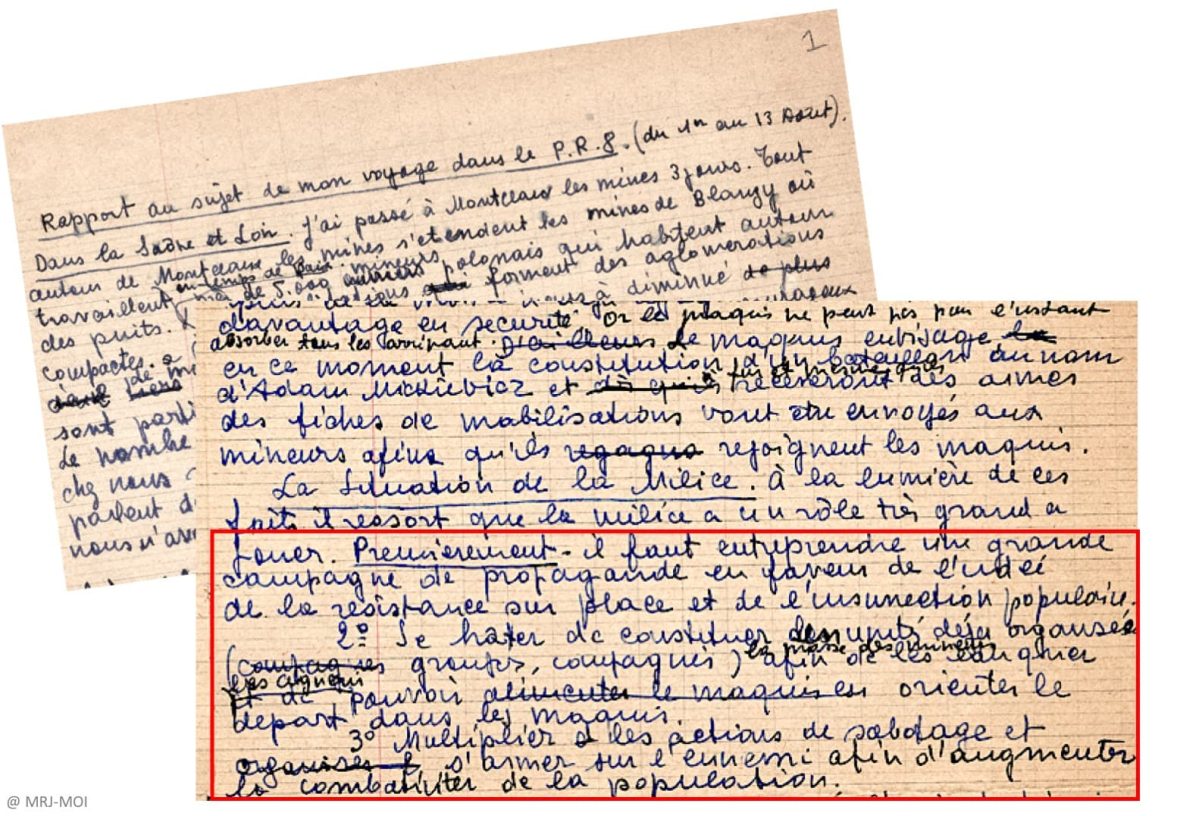 1
Rapport au sujet de mon voyage dans le P.R.8. (du 1er au 13 Août).
Dans la Saône et Loir. J'ai passé à Montceaux les mines 3 jours. Tout
autour de Montceaux les mines s'etendent les mines de Blanzy où
travaillent en temps de paix 5.000 mineurs polonais qui habitent autour
des puits. forment des aglomerations
compactes. a diminué de plus
sont parti
Le nombre
chez nous
parlent d
nous n'av
davantage en securité. Or le maquis ne peut pas pour l'instant
absorber tous les arrivant. D'ailleurs Le maquis envisage
en ce moment la constitution d'un bataillon au nom
d'Adam Mickievicz et recevront des armes
des fiches de mobilisations vont etre envoyés aux
mineurs afins qu'ils rejoignent les maquis.
La Situation de la Milice. À la lumière de ces
faits il ressort que la milice a un rôle très grand a
jouer. Premierement - il faut entreprendre une grande
campagne de propagande en faveur de l'idei
de la resistance sur place et de l'insurrection populaire.
2º Se hâter de constituer des unités déja organseé
la masse des mineurs
(compagnies groupes, compagnies) afin de les
et de pouvoir alimenter le maquis en orienter le
depart dans les maquis.
3º Multiplier les actions de sabotage et
organiser s'armer sur l'ennemi afin d'augmenter
la combativiter de la population.
@ MRJ-MOI